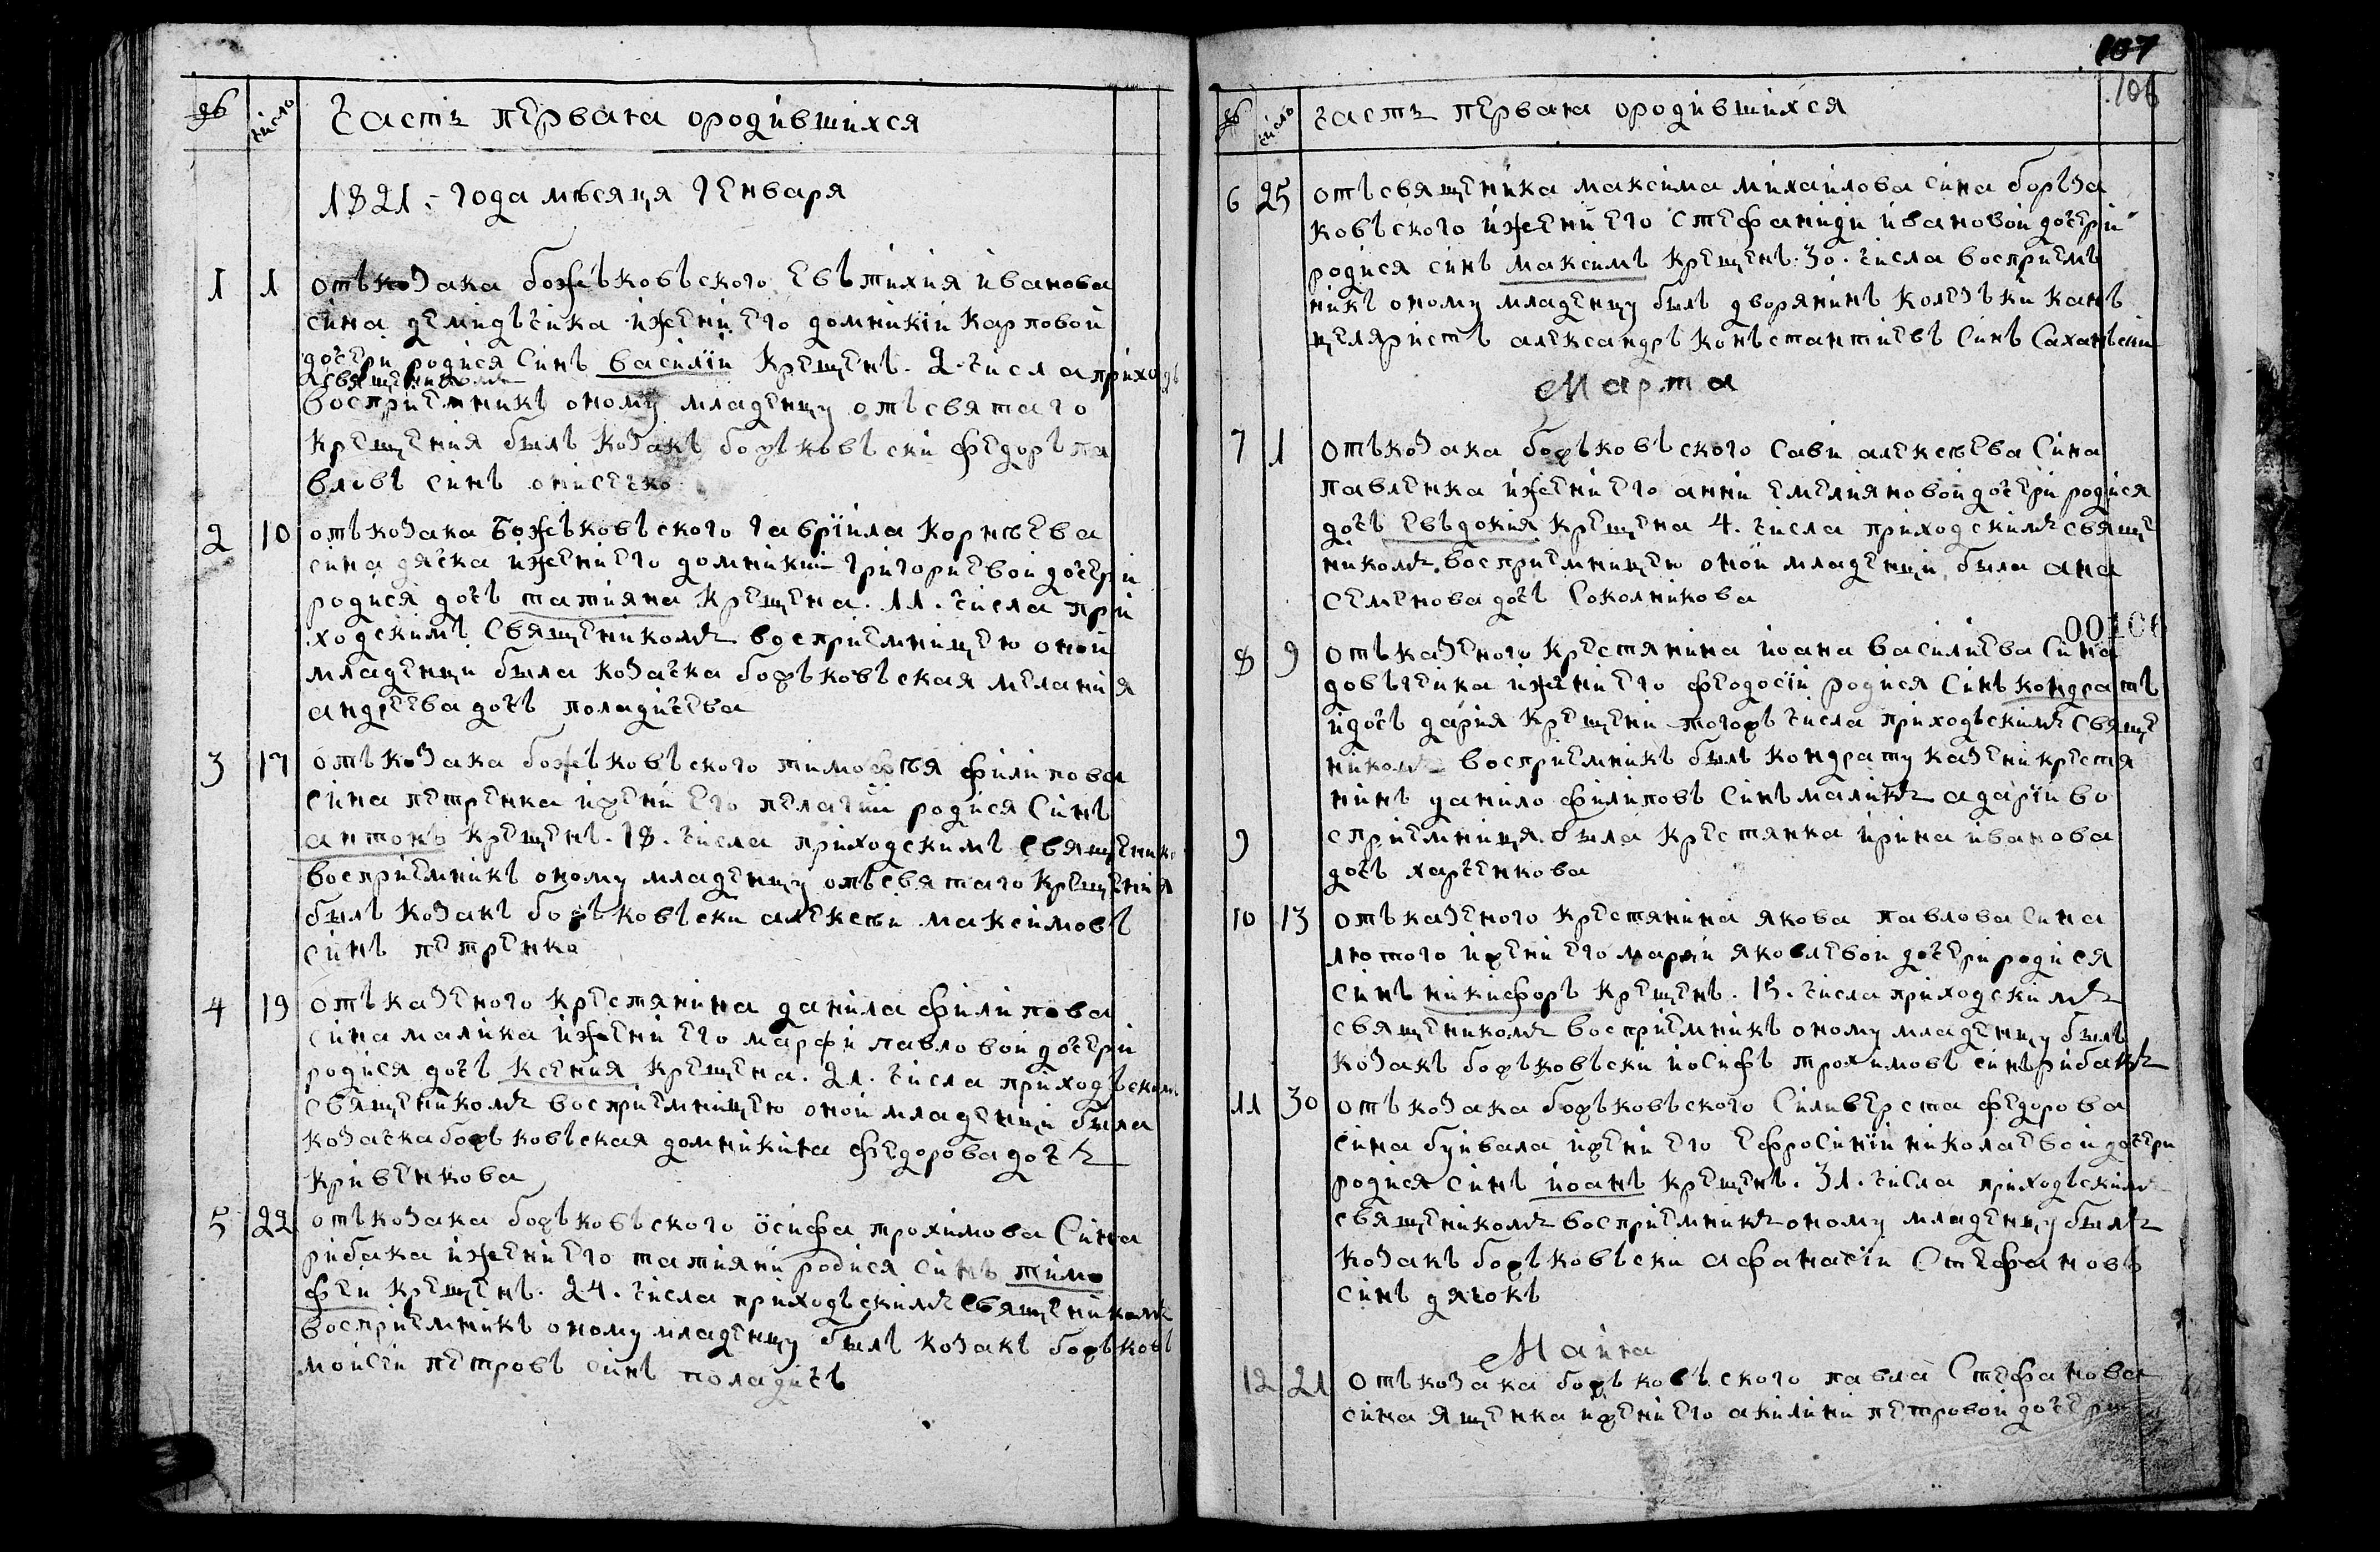 число
Часть первая ородившихся
1821:- года мѣсяця Генваря
1 1 отъ козака божъковъского Евътихия иванова
сина демидъчика ижени его домникіи Карповой
дочери родися Синъ василіи Крещенъ. 2. числа приходъ
священикомъ
восприемникъ оному младенцу отъ святаго
Крещения былъ козакъ боръковъски федоръ па
вловъ синъ онисечко
2 10 отъ козака Божъковъского гавріила Корнѣева
сина дячка ижени его домникии григориевой дочери
родися дочъ татияна Крещена. 11. числа при
ходскимъ Священикомъ восприемницею оной
младенци была козачка боръковъская мелания
андреева дочъ поладичева
3 17 отъ козака божъковъского тимофѣя филипова
Сина петренка ижени его пелагіи родися Синъ
антонъ Крещенъ. 18. числа приходскимъ Священико
восприемникъ оному младенцу отъ святаго Крещения
былъ козакъ боръковъски алексѣи максимовъ
синъ петренко
4 19 отъ казеного Крестянина данила филипова
Сина малика ижени его марфи павловой дочери
родися дочъ Ксения Крещена. 21. числа приходъским
Священикомъ восприемницею оной младенци была
козачка боръковъская домникиia федорова дочъ
Кривенкова
5 22 отъ козака боръковъского осифа трохимова Сина
рибака ижени его татияни родися синъ тимо
фей Крещенъ. 24. числа приходъскимъ Священикомъ
восприемникъ оному младенцу былъ козакъ боръковъ
мойсіи петровъ синъ поладичъ
107
106
число
часть первая ородившихся
6 25 отъ священика максима михаилова сина боръза
ковъского ижени его стефаниди ивановой дочери
родися синъ максимъ Крещенъ. 30. числа восприемъ
никъ оному младенцу былъ дворянинъ Колезъки канъ
целяристъ александръ Конъстантиевъ Синъ Саханъски
Марта
7 1 отъ козака боръковъского Сави алексѣева Сина
павленка ижени его анни емелияновой дочери родися
дочъ Евъдокия Крещена 4. числа приходскимъ свяще
никомъ. восприемницею оной младенци была ана
Семенова дочъ Соколникова
00106
8 9 отъ казеного Крестянина иоана василиева Сина
довъгенка ижени его феодосіи родися Синъ кондратъ
идочъ дария Крещени тогоръ числа приходъскимъ Свяще
никомъ восприемникъ былъ кондрату казени крестя
нинъ данило филиповъ Синъ маликъ адаріи во
9 сприемниця. была Крестянка ирина иванова
дочъ харченкова
10 13 отъ казеного Крестянина якова павлова Сина
лютого ижени его марии яковлевой дочери родися
Синъ никифоръ Крещенъ. 15. числа приходскимъ
священикомъ восприемникъ оному младенцу былъ
козакъ боръковъски иосифъ трохимовъ синъ рибакъ
11 30 отъ козака боръковъского Силиверста федорова
Сина буйвала ижени его Ефросиніи николаевой дочери
родися Синъ иоанъ Крещенъ. 31. числа приходъскимъ
священикомъ восприемникъ оному младенцу былъ
козакъ боръковъски афанасіи Стефановъ
синъ дячокъ
Маиiа
12 21 отъ козака боръковъского павла Стефанова
сина Ященка ижени его акилини петровой дочери